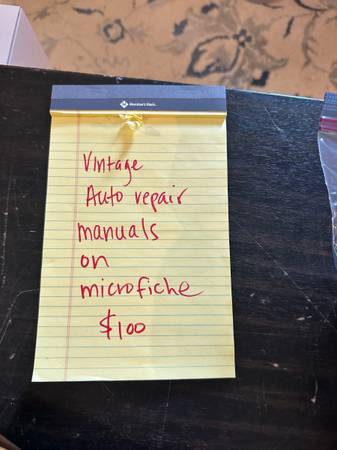 Member's Mark.
Vintage
Auto repair
manuals
on
microfiche
$100